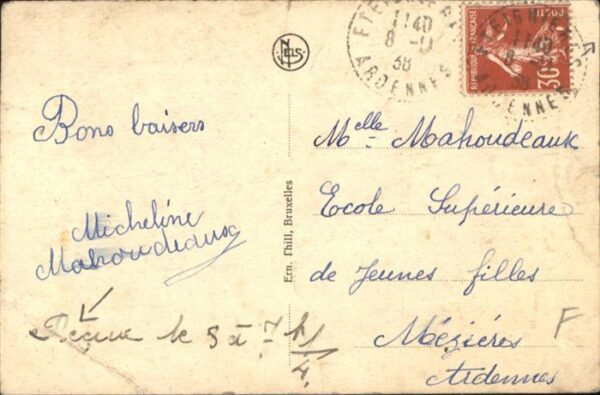 Bons baisers
Micheline
Mahoudeaux
Reçue le 9 à 7 h 1/4.
NELS
Ern. Thill, Bruxelles
11 40
8 -11
38
ARDENNES
REPUBLIQUE FRANÇAISE
30
11 40
ARDENNES
Melle Mahoudeaux
Ecole Supérieure
de Jeunes filles
Mézières
Ardennes
F